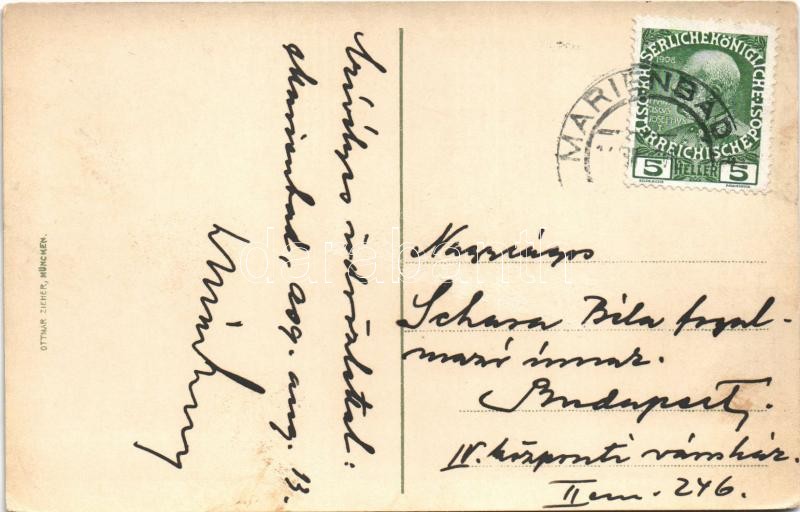 Szívélyes üdvözlettel:
Marienbad, 909. aug. 13.
OTTMAR ZIEHER, MÜNCHEN.
KAISERLICHEKÖNIGLICHE
ÖSTERREICHISCHEPOST
1908
5 HELLER 5
MARIENBAD
Nagyságos
Schara Béla fogal-
mazó úrnak.
Budapest,
IV. központi városház.
II em. 246.
darabanth